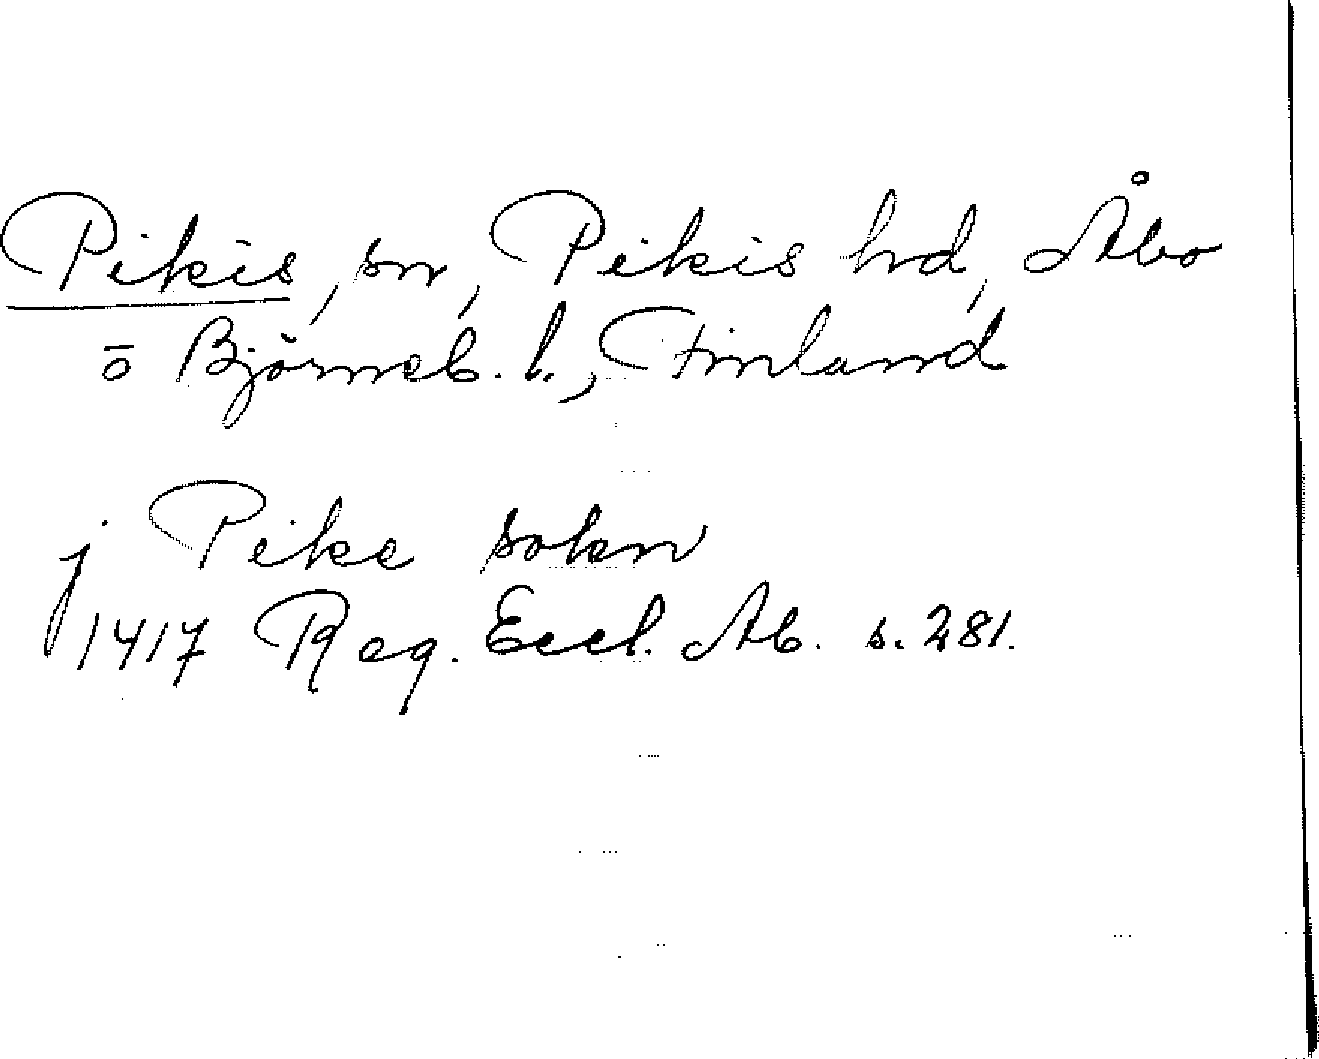 Pikis, sn, Pikis hd, Åbo
o̅ Björneb. l., Finland
j Pike sokn
1417 Reg. Eccl. Ab. s. 281.